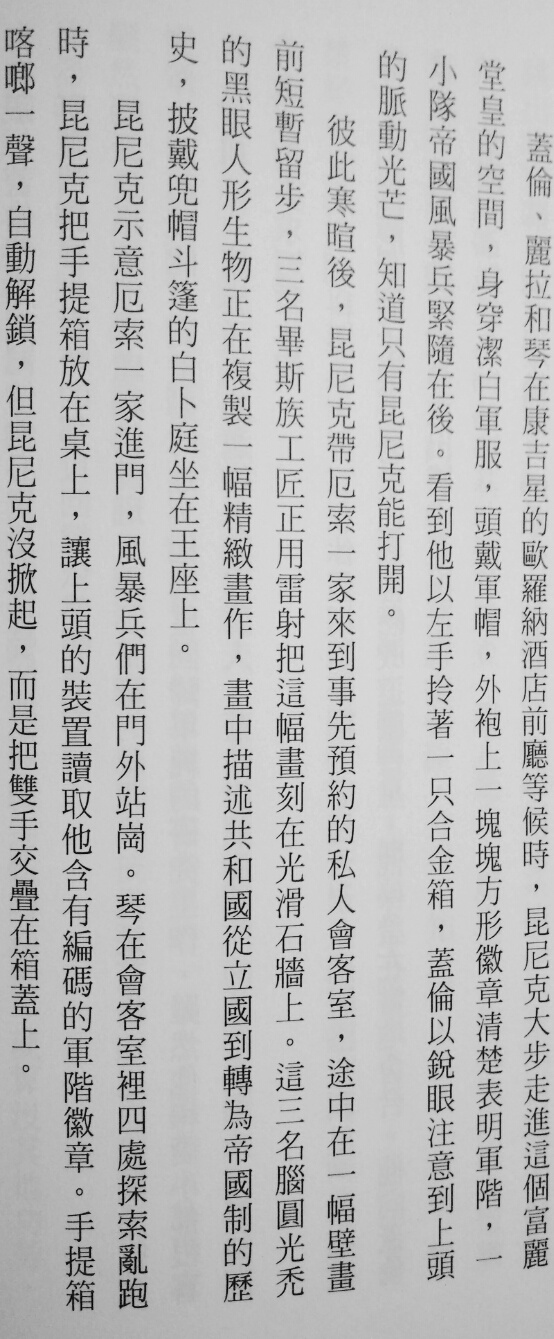 蓋倫、麗拉和琴在康吉星的歐羅納酒店前廳等候時，昆尼克大步走進這個富麗
堂皇的空間，身穿潔白軍服，頭戴軍帽，外袍上一塊塊方形徽章清楚表明軍階，一
小隊帝國風暴兵緊隨在後。看到他以左手拎著一只合金箱，蓋倫以銳眼注意到上頭
的脈動光芒，知道只有昆尼克能打開。
彼此寒暄後，昆尼克帶厄索一家來到事先預約的私人會客室，途中在一幅壁畫
前短暫留步，三名畢斯族工匠正用雷射把這幅畫刻在光滑石牆上。這三名腦圓光禿
的黑眼人形生物正在複製一幅精緻畫作，畫中描述共和國從立國到轉為帝國制的歷
史，披戴兜帽斗篷的白卜庭坐在王座上。
昆尼克示意厄索一家進門，風暴兵們在門外站崗。琴在會客室裡四處探索亂跑
時，昆尼克把手提箱放在桌上，讓上頭的裝置讀取他含有編碼的軍階徽章。手提箱
喀啷一聲，自動解鎖，但昆尼克沒掀起，而是把雙手交疊在箱蓋上。